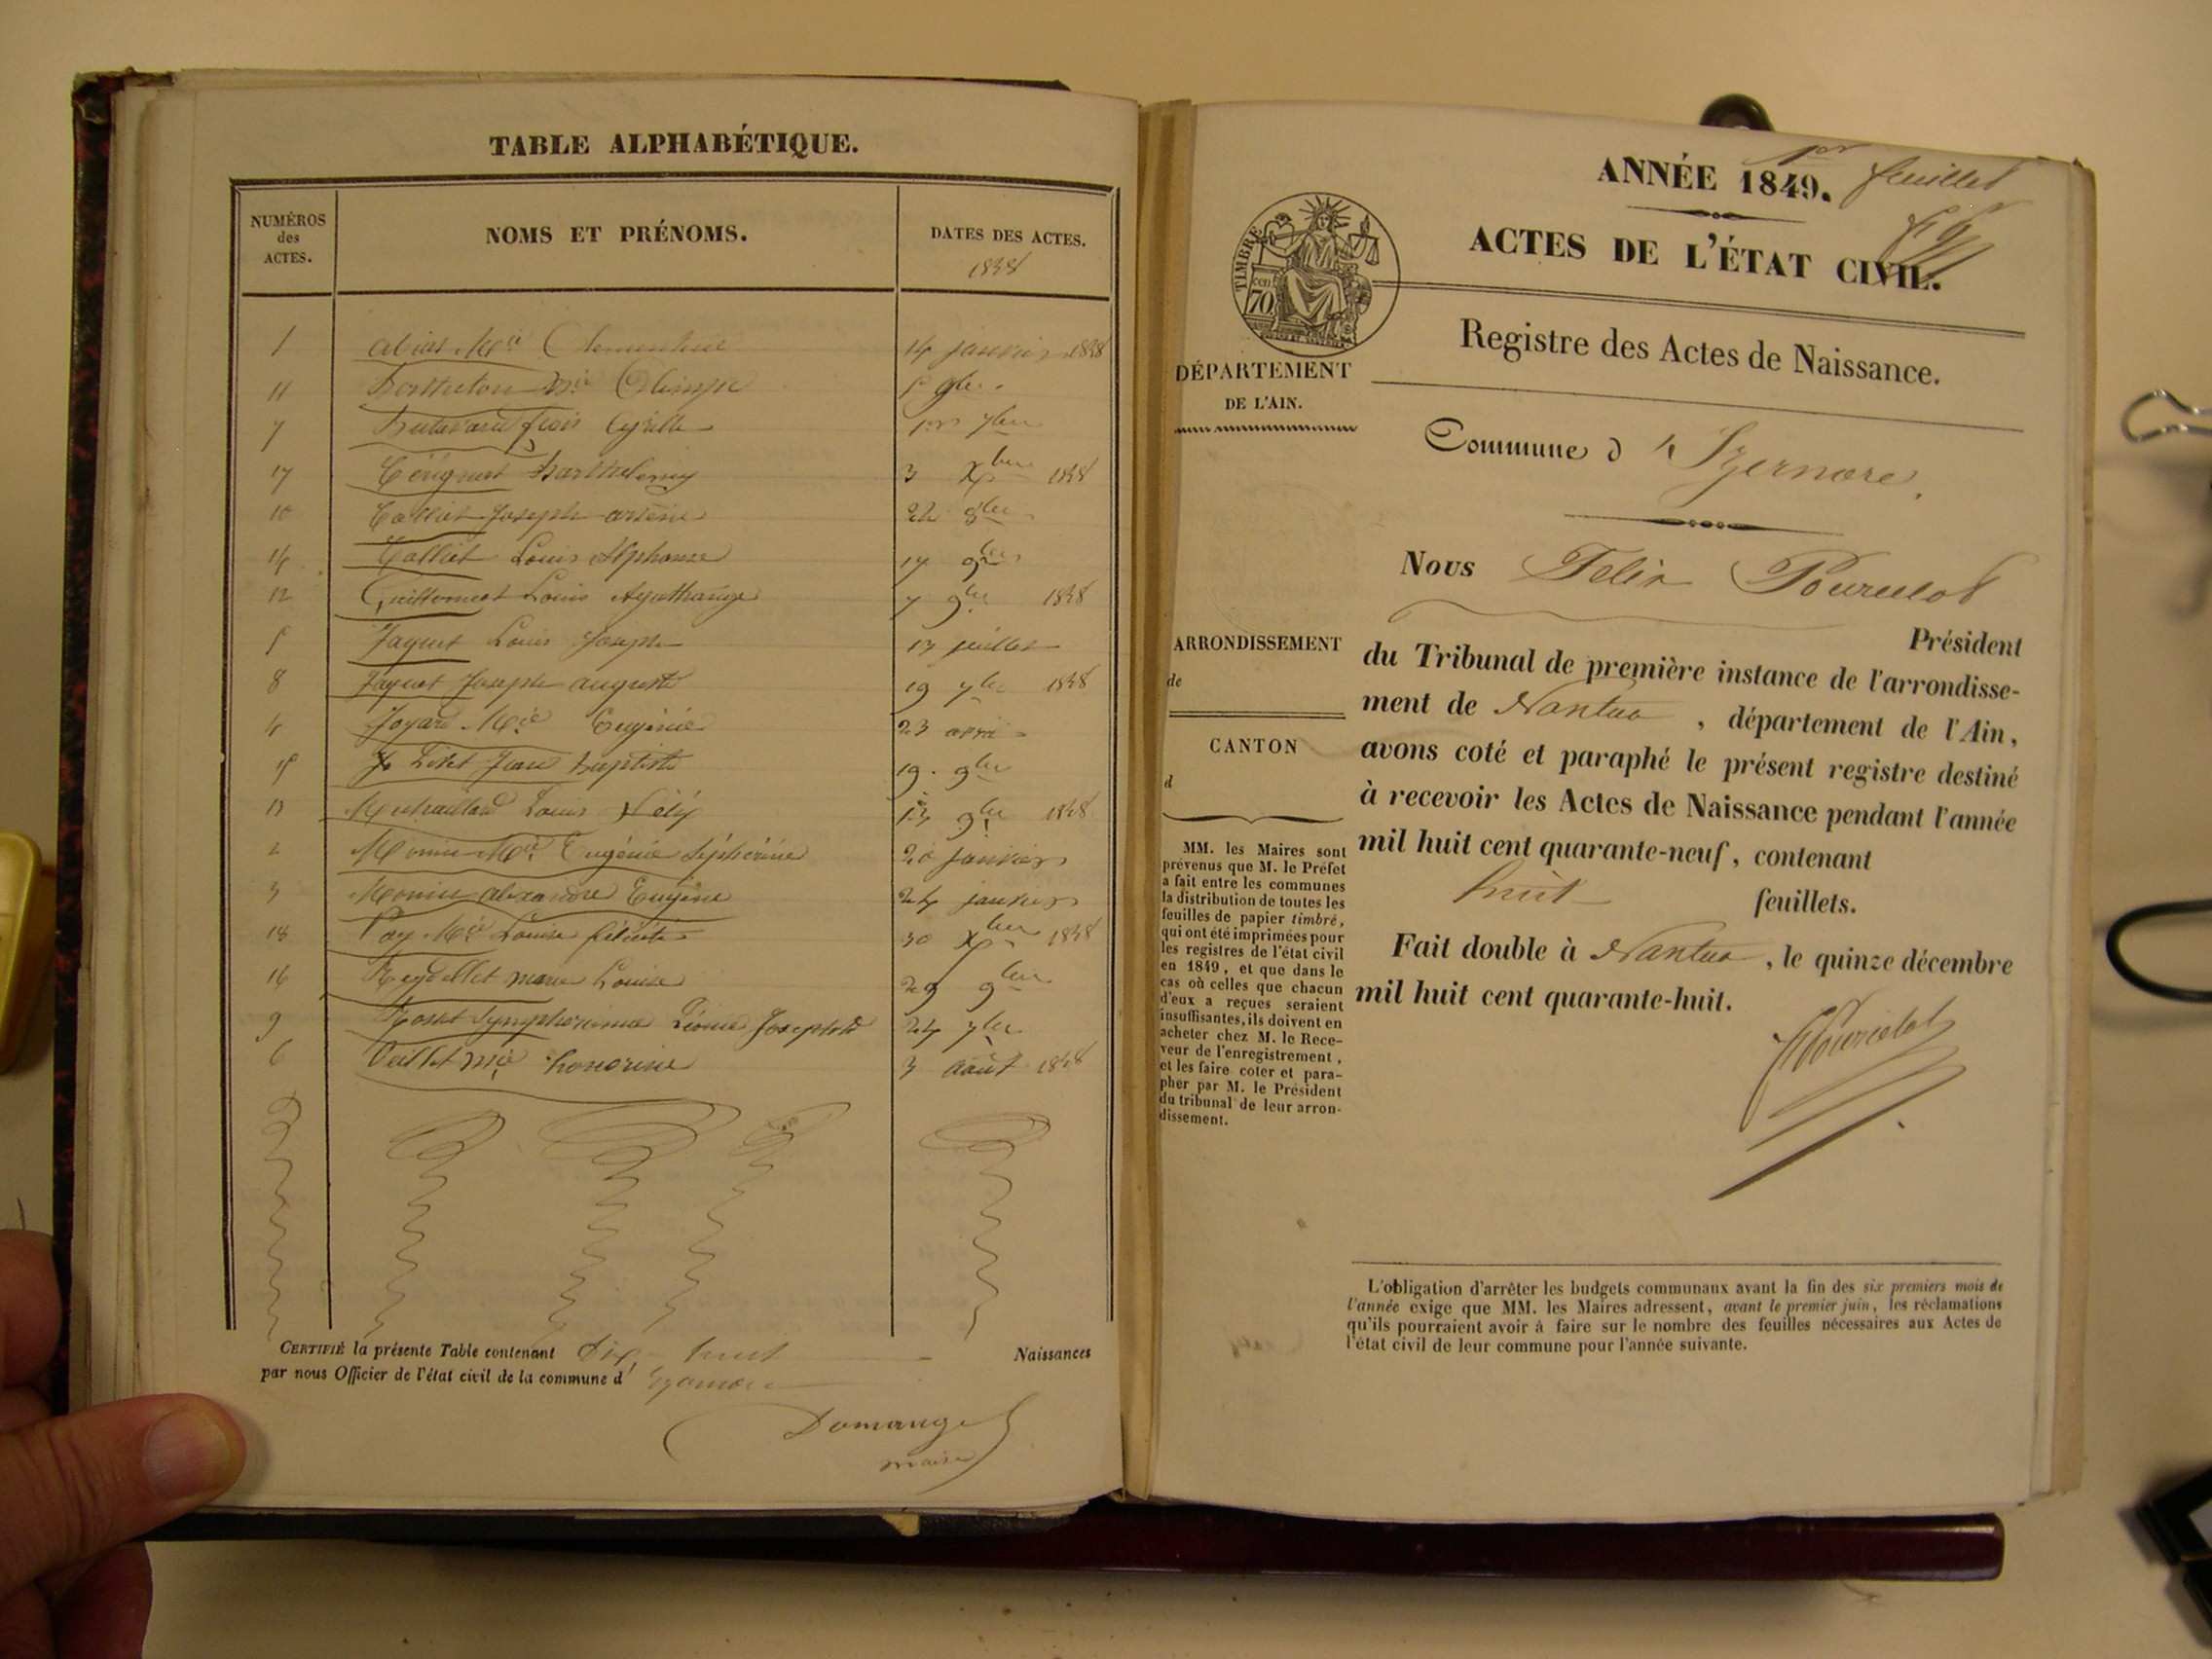 TABLE ALPHABÉTIQUE.
NUMÉROS
des
ACTES.
NOMS ET PRÉNOMS.
DATES DES ACTES.
1848
1 14 janvier 1848
11 Olimpe
7 Cyrille 1er 7bre
17 Barthelemy 3 Xbre 1848
10 Joseph arsène 22 8bre
14 Louis Alphonse 17 9bre
12 Louis 7 9bre 1848
5 Jaquet Louis Joseph 13 juillet
8 Jaquet Joseph auguste 19 7bre 1848
4 Joyard Mie Eugénie 23 avril
15 Jean Baptiste 19 9bre
13 Louis 13 9bre 1848
2 Monin Mie Eugénie 20 janvier
3 Monin alexandre Eugène 24 janvier
18 Mie Louise félicité 30 Xbre 1848
16 Reydellet marie Louise 29 9bre
9 Léonie Josephte 24 7bre
6 Mie honorine 3 août 1848
CERTIFIÉ la présente Table contenant dix huit Naissances
par nous Officier de l'état civil de la commune d' Izernore
Domange
maire
1er feuillet
ANNÉE 1849.
ACTES DE L'ÉTAT CIVIL.
TIMBRE
70
Registre des Actes de Naissance.
DÉPARTEMENT
DE L'AIN.
Commune d' Izernore.
Nous Felix Pourcelot
Président
ARRONDISSEMENT
de
CANTON
d
du Tribunal de première instance de l'arrondisse-
ment de Nantua, département de l'Ain,
avons coté et paraphé le présent registre destiné
à recevoir les Actes de Naissance pendant l'année
mil huit cent quarante-neuf, contenant
huit feuillets.
Fait double à Nantua, le quinze décembre
mil huit cent quarante-huit.
FPourcelot
MM. les Maires sont
prévenus que M. le Préfet
a fait entre les communes
la distribution de toutes les
feuilles de papier timbré,
qui ont été imprimées pour
les registres de l'état civil
en 1849, et que dans le
cas où celles que chacun
d'eux a reçues seraient
insuffisantes, ils doivent en
acheter chez M. le Rece-
veur de l'enregistrement,
et les faire coter et para-
pher par M. le Président
du tribunal de leur arron-
dissement.
L'obligation d'arrêter les budgets communaux avant la fin des six premiers mois de
l'année exige que MM. les Maires adressent, avant le premier juin, les réclamations
qu'ils pourraient avoir à faire sur le nombre des feuilles nécessaires aux Actes de
l'état civil de leur commune pour l'année suivante.